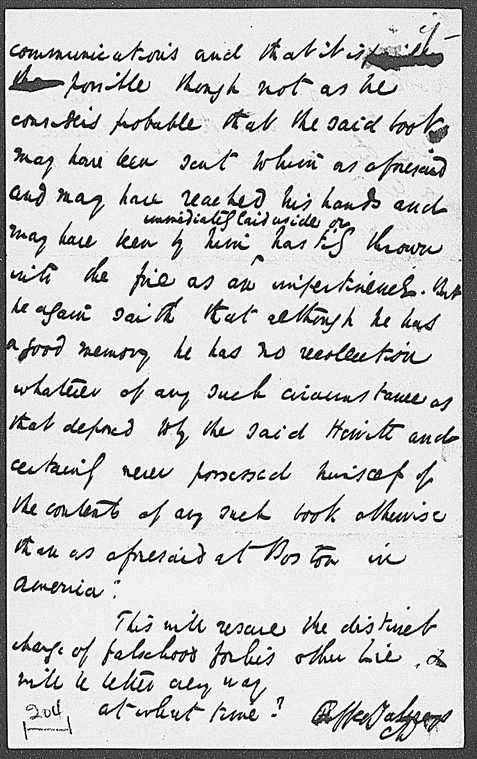 communications and that it is
the possible though not as he
considers probable that the said book
may have been sent to him as aforesaid
and may have reached his hands and
immediately laid aside or
may have been by him hastily thrown
into the fire as an impertinence. That
he again saith that although he has
a good memory he has no recollection
whatever of any such circumstance as
that deposed to by the said Hewitt and
certainly never possessed himself of
the contents of any such book otherwise
than as aforesaid at Boston in
America.
This will rescue the distinct
charge of falsehood for his other lie. &
will be better any way
at what time?
204